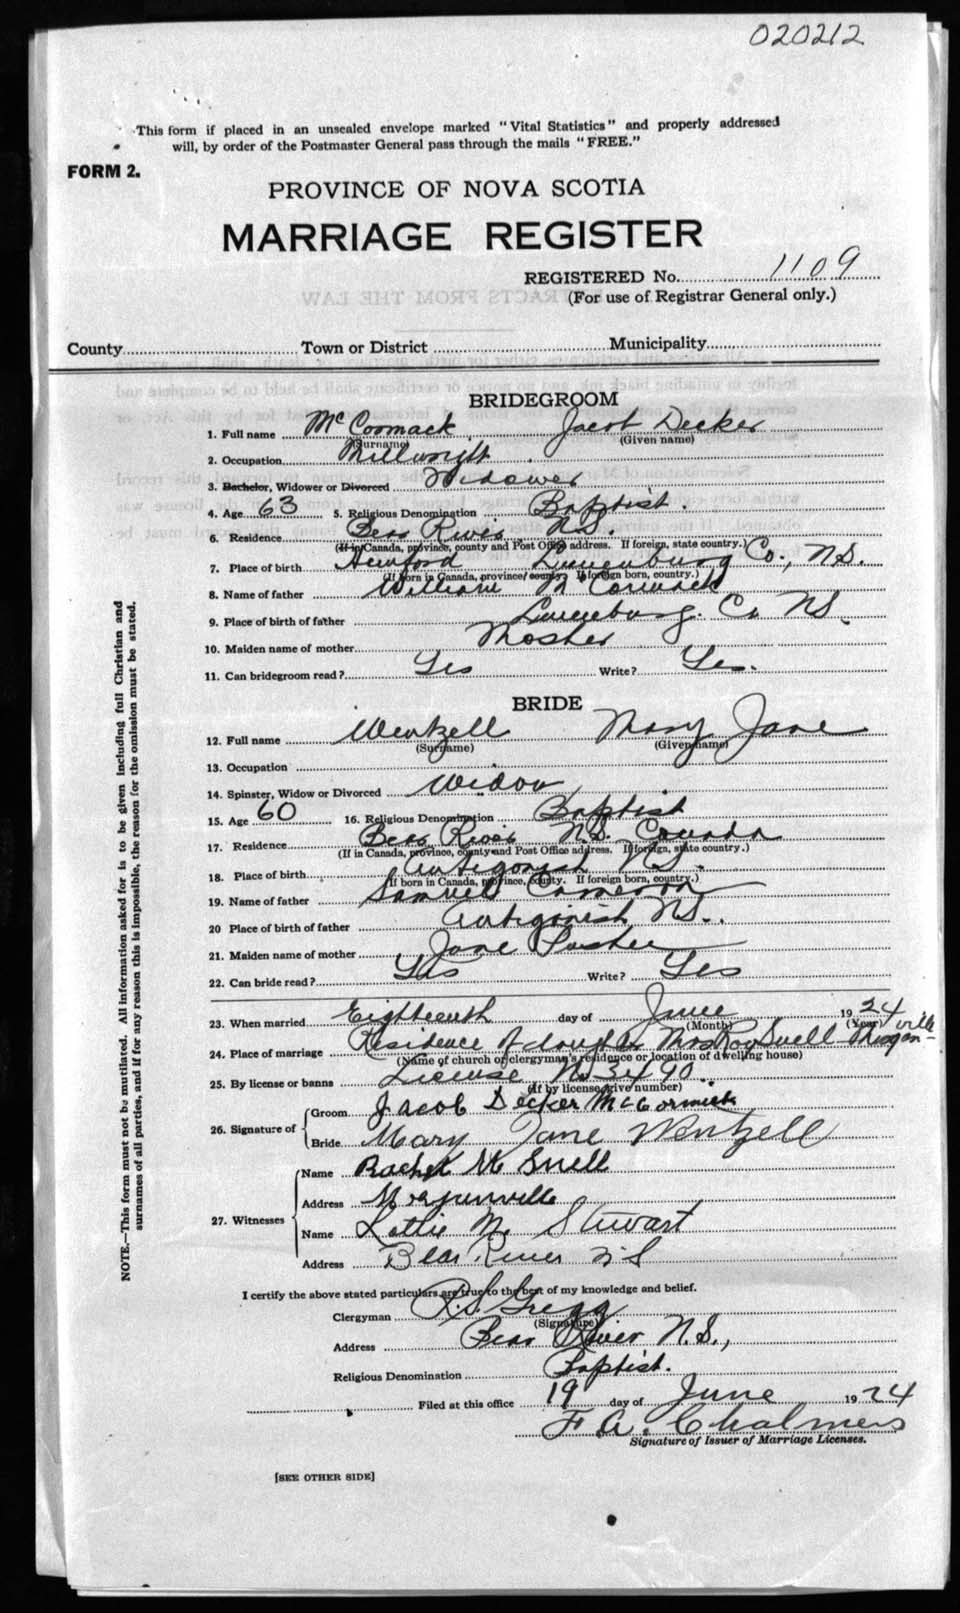 020212
This form if placed in an unsealed envelope marked "Vital Statistics" and properly addressed
will, by order of the Postmaster General pass through the mails "FREE."
FORM 2.
PROVINCE OF NOVA SCOTIA
MARRIAGE REGISTER
REGISTERED No. 1109
(For use of Registrar General only.)
County Town or District Municipality
BRIDEGROOM
1. Full name McCormack Jacob Decker
(Surname) (Given name)
2. Occupation Millwright
3. Bachelor, Widower or Divorced Widower
4. Age 63 5. Religious Denomination Baptist.
6. Residence Bear River N.S.
(If in Canada, province, county and Post Office address. If foreign, state country.)
7. Place of birth Lunenburg Co., N.S.
(If born in Canada, province, county. If foreign born, country.)
8. Name of father William McCormack
9. Place of birth of father Lunenburg Co NS.
10. Maiden name of mother Mosher
11. Can bridegroom read? Yes Write? Yes.
BRIDE
12. Full name Wentzell Mary Jane
(Surname) (Given name)
13. Occupation
14. Spinster, Widow or Divorced Widow
15. Age 60 16. Religious Denomination Baptist
17. Residence Bear River N.S. Canada
(If in Canada, province, county and Post Office address. If foreign, state country.)
18. Place of birth Antigonish N.S.
(If born in Canada, province, county. If foreign born, country.)
19. Name of father Samuel Cameron
20 Place of birth of father Antigonish NS.
21. Maiden name of mother Jane
22. Can bride read? Yes Write? Yes
23. When married Eighteenth day of June 1924
(Month) (Year)
24. Place of marriage Residence of daughter Mrs Roy Snell Morganville
(Name of church or clergyman's residence or location of dwelling house)
25. By license or banns License No 3490
(If by license, give number)
26. Signature of Groom Jacob Decker McCormick
Bride Mary Jane Wentzell
27. Witnesses Name Rachel M Snell
Address Morganville
Name Lettie M. Stewart
Address Bear River N S
I certify the above stated particulars are true to the best of my knowledge and belief.
Clergyman R.S. Gregg
(Signature)
Address Bear River N.S.,
Religious Denomination Baptist.
Filed at this office 19 day of June 1924
F A. Chalmers
Signature of Issuer of Marriage Licenses.
[SEE OTHER SIDE]
NOTE.—This form must not be mutilated. All information asked for is to be given including full Christian and
surnames of all parties, and if for any reason this is impossible, the reason for the omission must be stated.